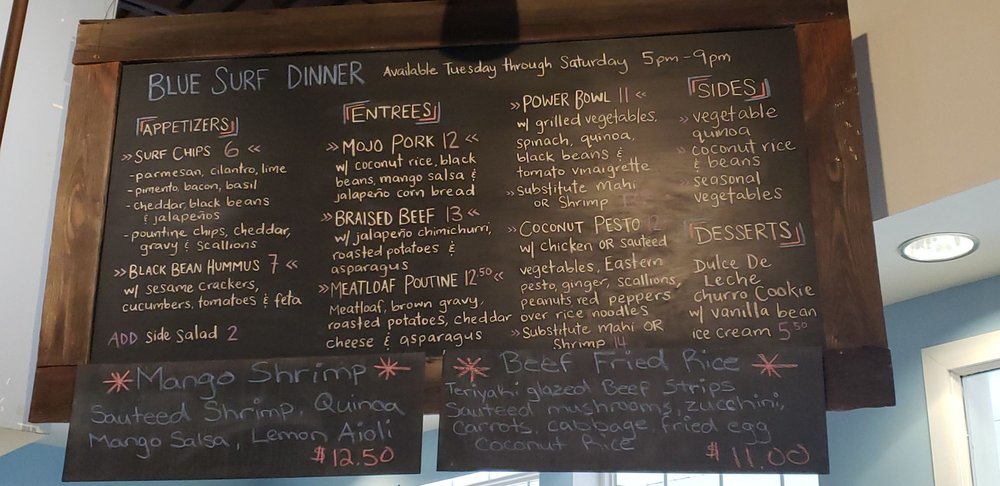 BLUE SURF DINNER Available Tuesday through Saturday 5pm-9pm
APPETIZERS
» SURF CHIPS 6 «
-parmesan, cilantro, lime
-pimento, bacon, basil
-cheddar, black beans
& jalapeños
-pountine chips, cheddar,
gravy & scallions
» BLACK BEAN HUMMUS 7 «
w/ sesame crackers,
cucumbers, tomatoes & feta
ADD side salad 2
ENTREES
» MOJO PORK 12 «
w/ coconut rice, black
beans, mango salsa &
jalapeño corn bread
» BRAISED BEEF 13 «
w/ jalapeño chimichurri,
roasted potatoes &
asparagus
» MEATLOAF POUTINE 12.50 «
Meatloaf, brown gravy,
roasted potatoes, cheddar
cheese & asparagus
» POWER BOWL 11 «
w/ grilled vegetables,
spinach, quinoa,
black beans &
tomato vinaigrette
» substitute mahi
OR Shrimp
» COCONUT PESTO 12
w/ chicken OR sauteed
vegetables, Eastern
pesto, ginger, scallions,
peanuts red peppers
over rice noodles
» Substitute Mahi OR
Shrimp 14
SIDES
» vegetable
quinoa
» coconut rice
& beans
» seasonal
vegetables
DESSERTS
Dulce De
Leche
churro Cookie
w/ vanilla bean
ice cream 5.50
Mango Shrimp
Sauteed Shrimp, Quinoa
Mango Salsa, Lemon Aioli
$12.50
Beef Fried Rice
Teriyaki glazed Beef Strips
Sauteed mushrooms, zucchini,
Carrots, cabbage, fried egg
Coconut Rice
$11.00